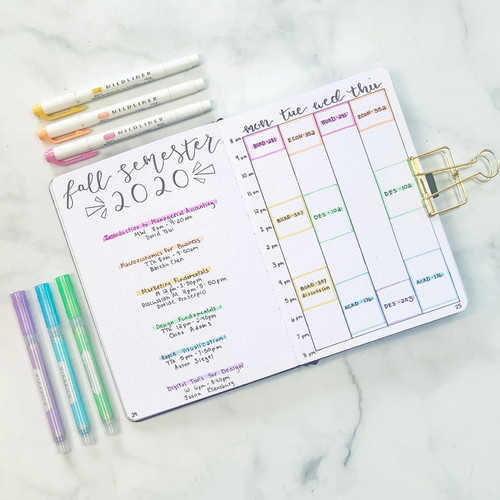 MILDLINER
MILDLINER
MILDLINER
fall semester
2020
Introduction to Managerial Accounting
MW 8am - 9:20am
David Tsui
Macroeconomics for Business
TTh 8am - 9:50am
Baizhu Chen
Marketing Fundamentals
M 12pm - 1:50pm
Discussion M 4pm - 5:50pm
Davide Proserpio
Design Fundamentals
TTh 12pm - 2:40pm
Oscar Adams
Rapid Visualization
TTh 5pm - 7:50pm
Aaron Siegel
Digital Tools for Design
W 6pm - 8:40pm
Jason Ellenburg
24
mon tue wed thu
8 am
9 pm
10 pm
11 pm
12 pm
1 pm
2 pm
3 pm
4 pm
5 pm
6 pm
7 pm
8 pm
BUAD-281
ECON-352
BUAD-281
ECON-352
BUAD-307
DES-102
DES-102
BUAD-307
discussion
ACAD-176
DES-203
ACAD-176
25